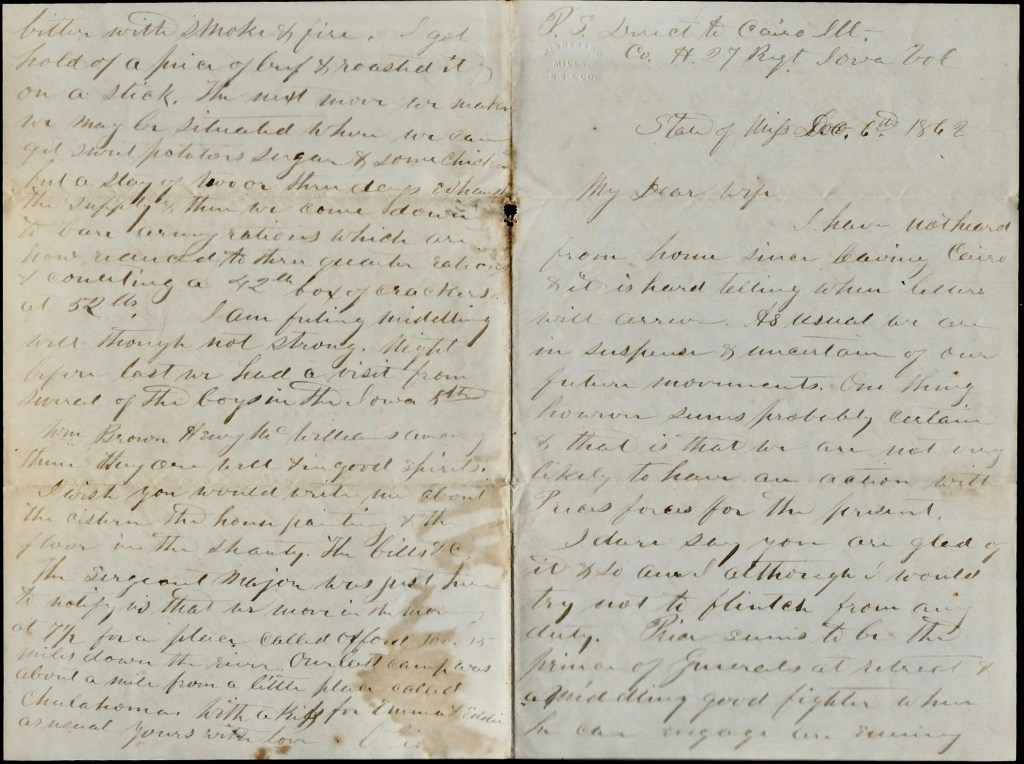 bitter with smoke & fire. I got
hold of a piece of beef & roasted it
on a stick. The next move we make
we may be situated where we can
get sweet potatoes sugar & some chicken
but a stay of two or three days exhausts
the supply & then we come down
to bare army rations which are
now reduced to three quarter rations
& counting a 42 lb box of crackers
at 52 lb. I am feeling middling
well though not strong. Night
before last we had a visit from
several of the boys in the Iowa 5th
Wm Brown Henry McWilliams among
them they are well & in good spirits.
I wish you would write me about
the cistern the house painting & the
floor in the shanty. The bills &c
The Sergeant Major was just here
to notify us that we move in the mor
at 7½ for a place called Oxford some 15
miles down the river. Our last camp was
about a mile from a little place called
Chulahoma. With a kiss for Emma & Eddie
as usual yours with love
P.S. Direct to Cairo Ill-
Co. H. 27 Regt Iowa Vol
State of Miss Dec. 6th 1862
My Dear wife
I have not heard
from home since leaving Cairo
& it is hard telling when letters
will arrive. As usual we are
in suspense & uncertain of our
future movements. One thing
however seems probably certain
& that is that we are not very
likely to have an action with
Prices forces for the present.
I dare say you are glad of
it & so am I although I would
try not to flinch from any
duty. Price seems to be the
prince of Generals at retreat &
a middling good fighter when
he can engage an enemy